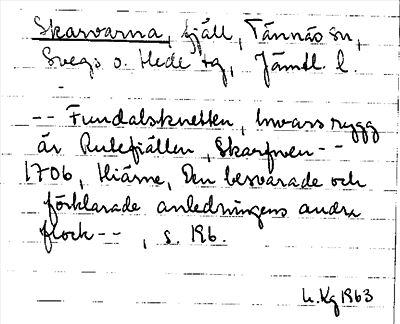 Skarvarna, fjäll, Tännäs sn,
Svegs o. Hede tg, Jämtl. l.
-- Fundalsknetten, Invars rygg
är Rutefjällen, Skarfven --
1706, Hiärne, Den besvarade och
förklarade anledningens andra
flock --, s. 196.
L. Kg 1963